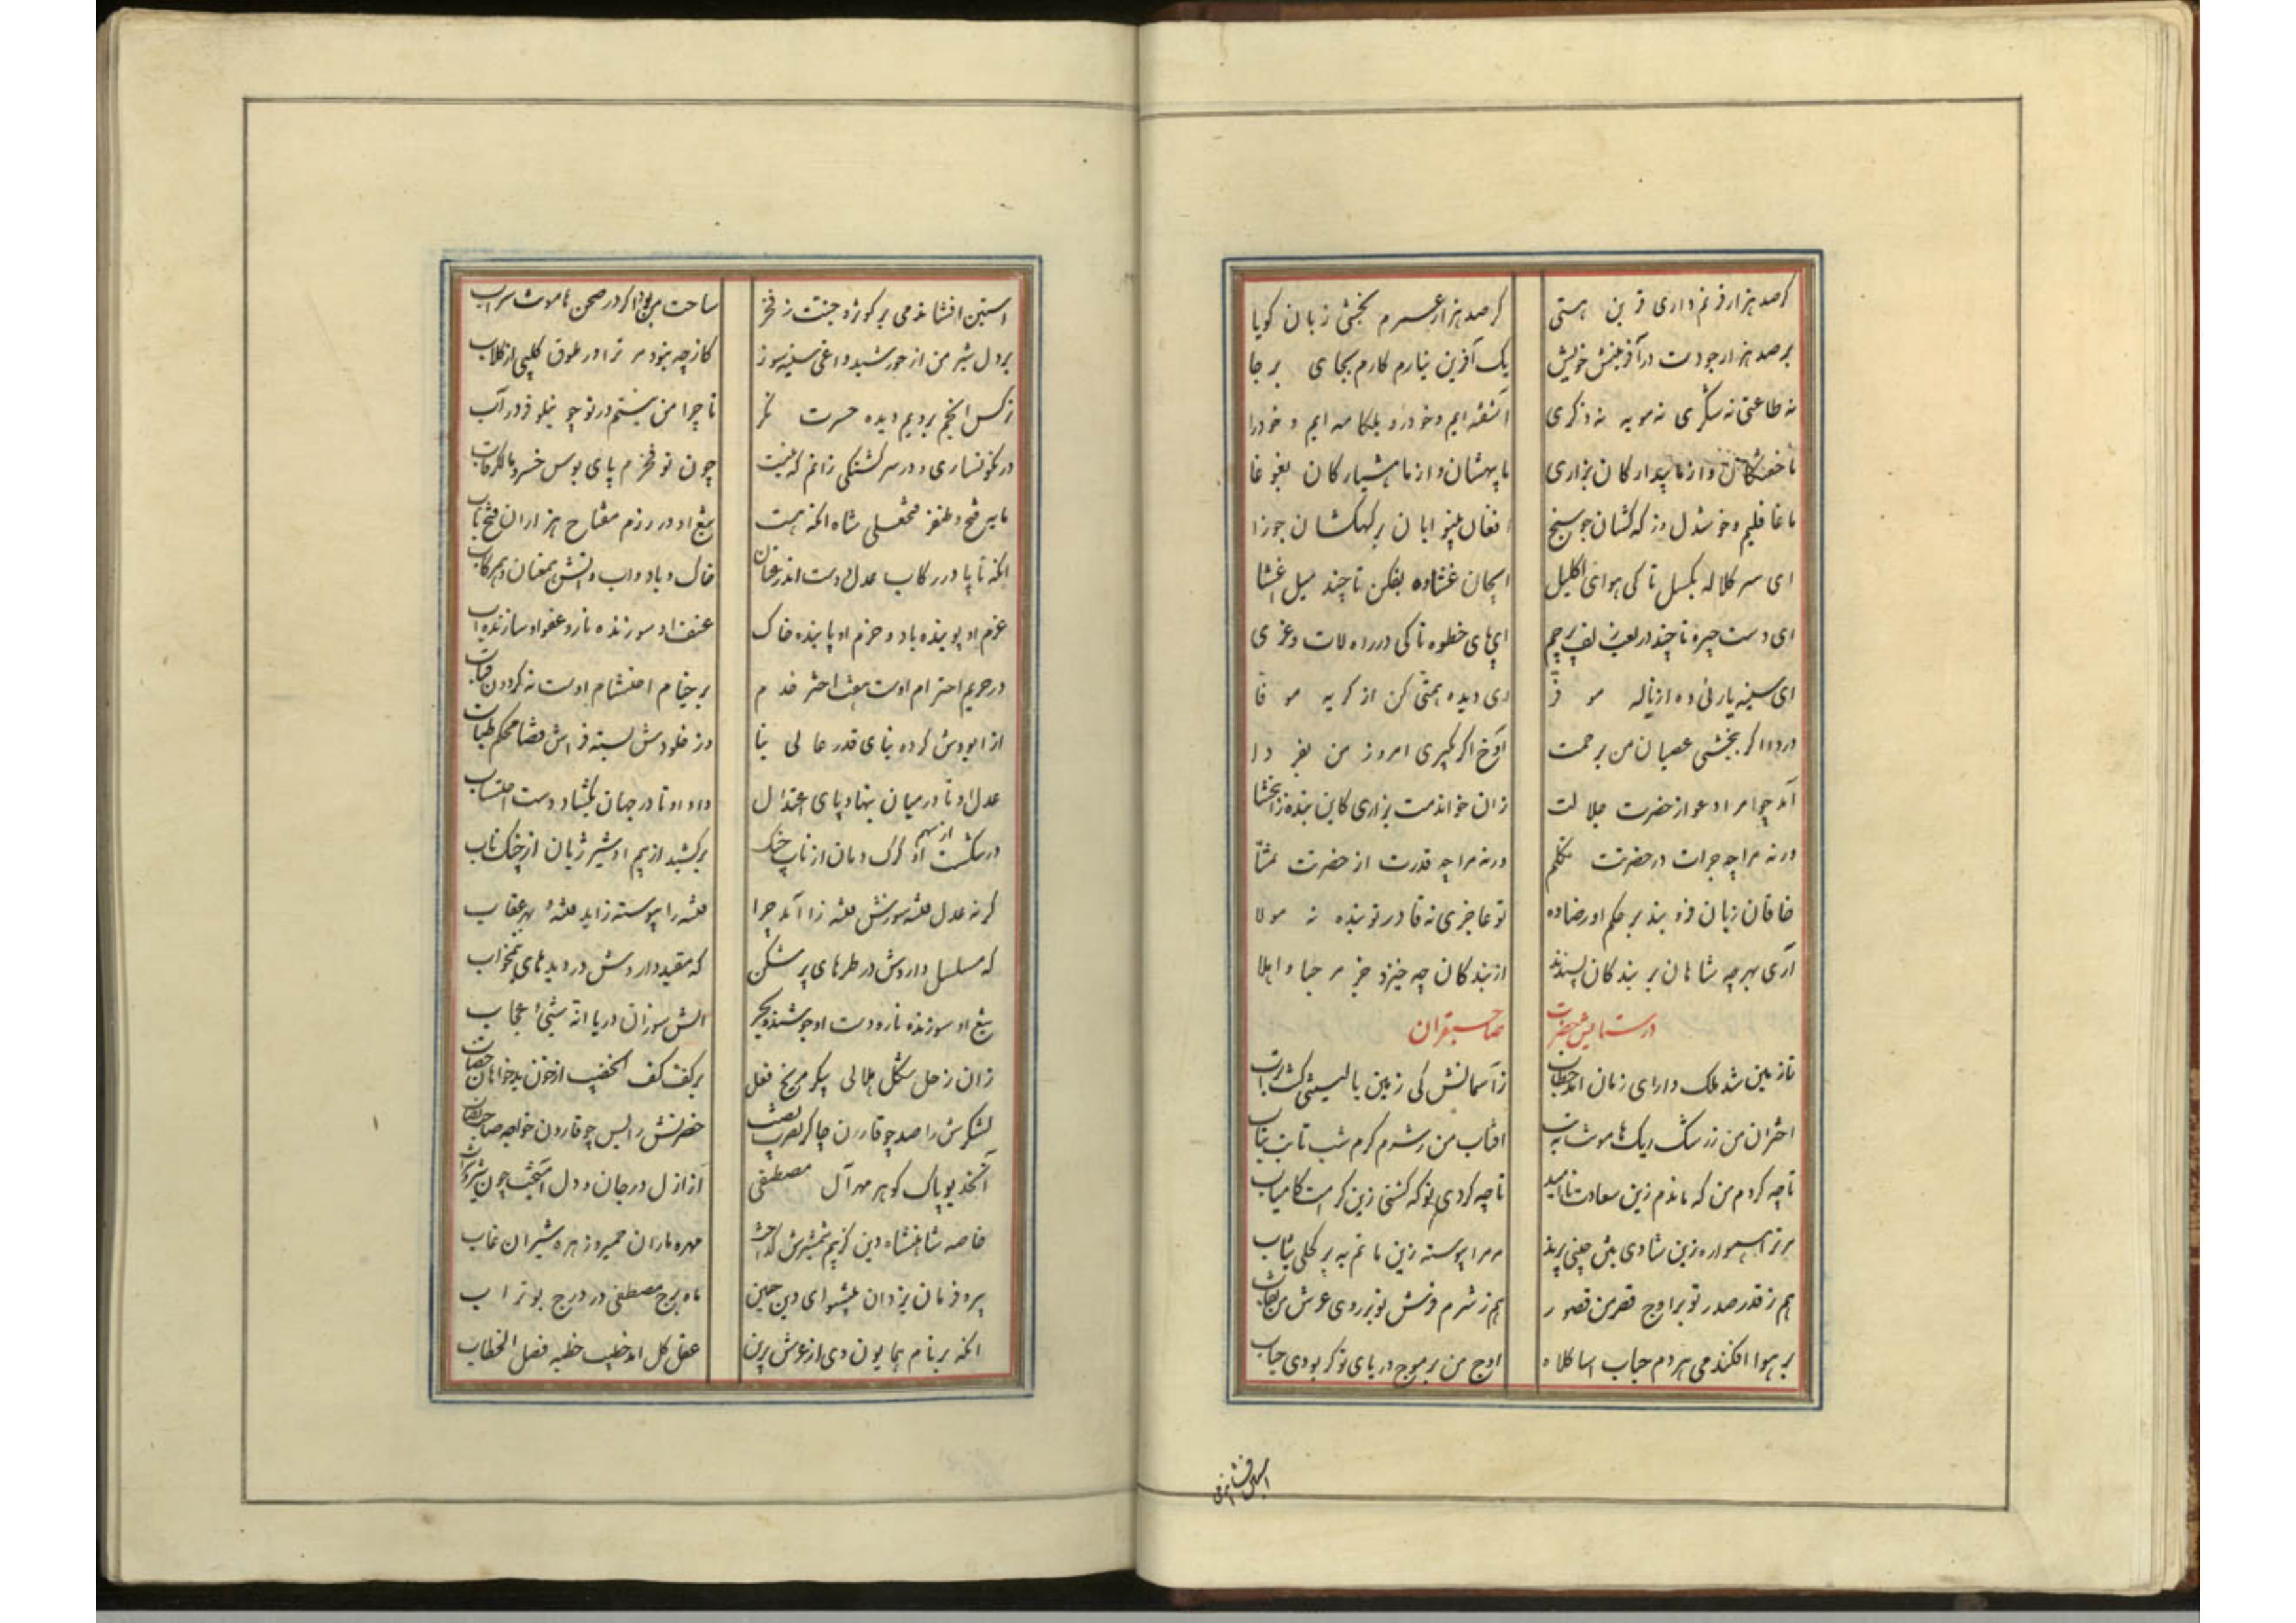 کر صد هزار قرنم داری قرین هستی کر صد هزار عمرم بخشی زبان کویا
بر صد هزار جودت در آفرینش خویش یک آفرین نیارم کارم بجای بر جا
نه طاعتی نه شکری نه مویه نه ذکری آشفته ایم و خودرو بلکامه ایم و خودرا
ما خفتکان و از ما بیدارکان بزاری ما بیهشان و از ما هشیارکان بغوغا
ما غافلیم و خوشدل وز که کشان جو سنج افغان بینوایان بر کهکشان جوزا
ای سر کلاله بکسل تا کی هوای اکلیل ایجان غشاوه بفکن تا چند میل غشا
ای دست چیره تا چند در لعب زلف پرچم ای پای خطوه تا کی در راه لات و عزی
ای سینه یارئی ده از ناله موفر ای دیده همتی کن از کریه موفا
دردا اکر بخشی عصیان من برحمت آوخ اکر بکیری امروز من بفردا
آمد چو امر ادعو از حضرت جلالت زان خواندمت بزاری کاین بنده را ببخشا
ورنه مرا چه جرات در حضرتت تکلم ورنه مرا چه قدرت از حضرتت تمنا
خاقان زبان فرو بند بر حکم او رضا ده تو عاجزی نه قادر تو بنده نه مولا
آری بهر چه شاهان بر بندکان پسندند از بندکان چه خیزد جز مرحبا و اهلا
در ستایش حضرت صاحبقران
تا زمین شد ملک دارای زمان آمد خطاب ز آسمانش کی زمین یا لیتنی کنت تراب
اختران من ز رشک ریک هامونت بتب آفتاب من ز شرم کرم شب تابت بتاب
تا چه کردم من که ماندم زین سعادت نا امید تا چه کردی تو که کشتی زین کرامت کامیاب
مر ترا همواره زین شادی بتن چینی پرند مر مرا پیوسته زین ماتم ببر کحلی ثیاب
هم ز قدر صدر تو بر اوج قصر من قصور هم ز شرم فرش تو بر روی عرش من حجاب
بر هوا افکندمی هر دم حباب آسا کلاه اوج من بر موج دریای تو کر بودی حباب
آستین افشاندمی
آستین افشاندمی بر کوثر و جنت ز فخر ساحت من بود اکر در صحن هامونت سراب
بر دل شیر من از خورشید داغی سینه سوز کاز چه بنود مر ترا در طوق کلبی از کلاب
نرکس انجم برویم دیده حسرت نکر تا چرا من نیستم در تو چو نیلوفر در آب
در نکونساری و در سرکشتکی زانم که نیست چون تو فخرم پای بوس خسرو مالک رقاب
مایه فتح و ظفر فتحعلی شاه آنکه هست تیغ او در رزم مفتاح هزاران فتح باب
آنکه تا پا در رکاب عدل و دست اندر عنان خاک و باد و آب و آتش همعنان و همرکاب
عزم او پوینده باد و حزم او پاینده خاک عنف او سوزنده نار و عفو او سازنده آب
در حریم احترام اوست هفت اختر خدم بر خیام احتشام اوست نه کردون قباب
از ابد ودش کرده بنای قدر عالی بنا وز خلودش بسته فراش قضا محکم طناب
عدل او تا در میان بنهاد پای اعتدال داد او تا در جهان بکشاد دست احتساب
در شکست از سهم او کرک دمان از ناب چنک برکشید از بیم او شیر ژیان از چنک ناب
کر نه عدل فتنه سوزش فتنه زا آمد چرا فتنه را پیوسته زاید فتنه بهر عقاب
که مسلسل داردش در طره‌های پر شکن که مقید داردش در دیده‌های نیمخواب
تیغ او سوزنده نار و دست او جوشنده بحر آتش سوزان و دریا انه شیئ عجاب
زان زحل شکل هلالی پیکر مریخ فعل بر کف کف الخضیب از خون بدخواهان خضاب
لشکرش را صد چو قارن چاکر نصرت نصیب حضرتش را بس چو قارون خواجه صاحب نصاب
آنخدیو پاک کوهر مهر آل مصطفی از ازل در جان و دل آمیخت چون شیر و شراب
خاصه شاهنشاه دین کز بیم شمشیرش کداخت مهره ماران حمیر و زهره شیران غاب
پیرو فرمان یزدان پیشوای دین حسین ماه برج مصطفی در درج بوتراب
آنکه بر نام همایون وی از عرش برین عقل کل آمد خطیب خطبه فصل الخطاب